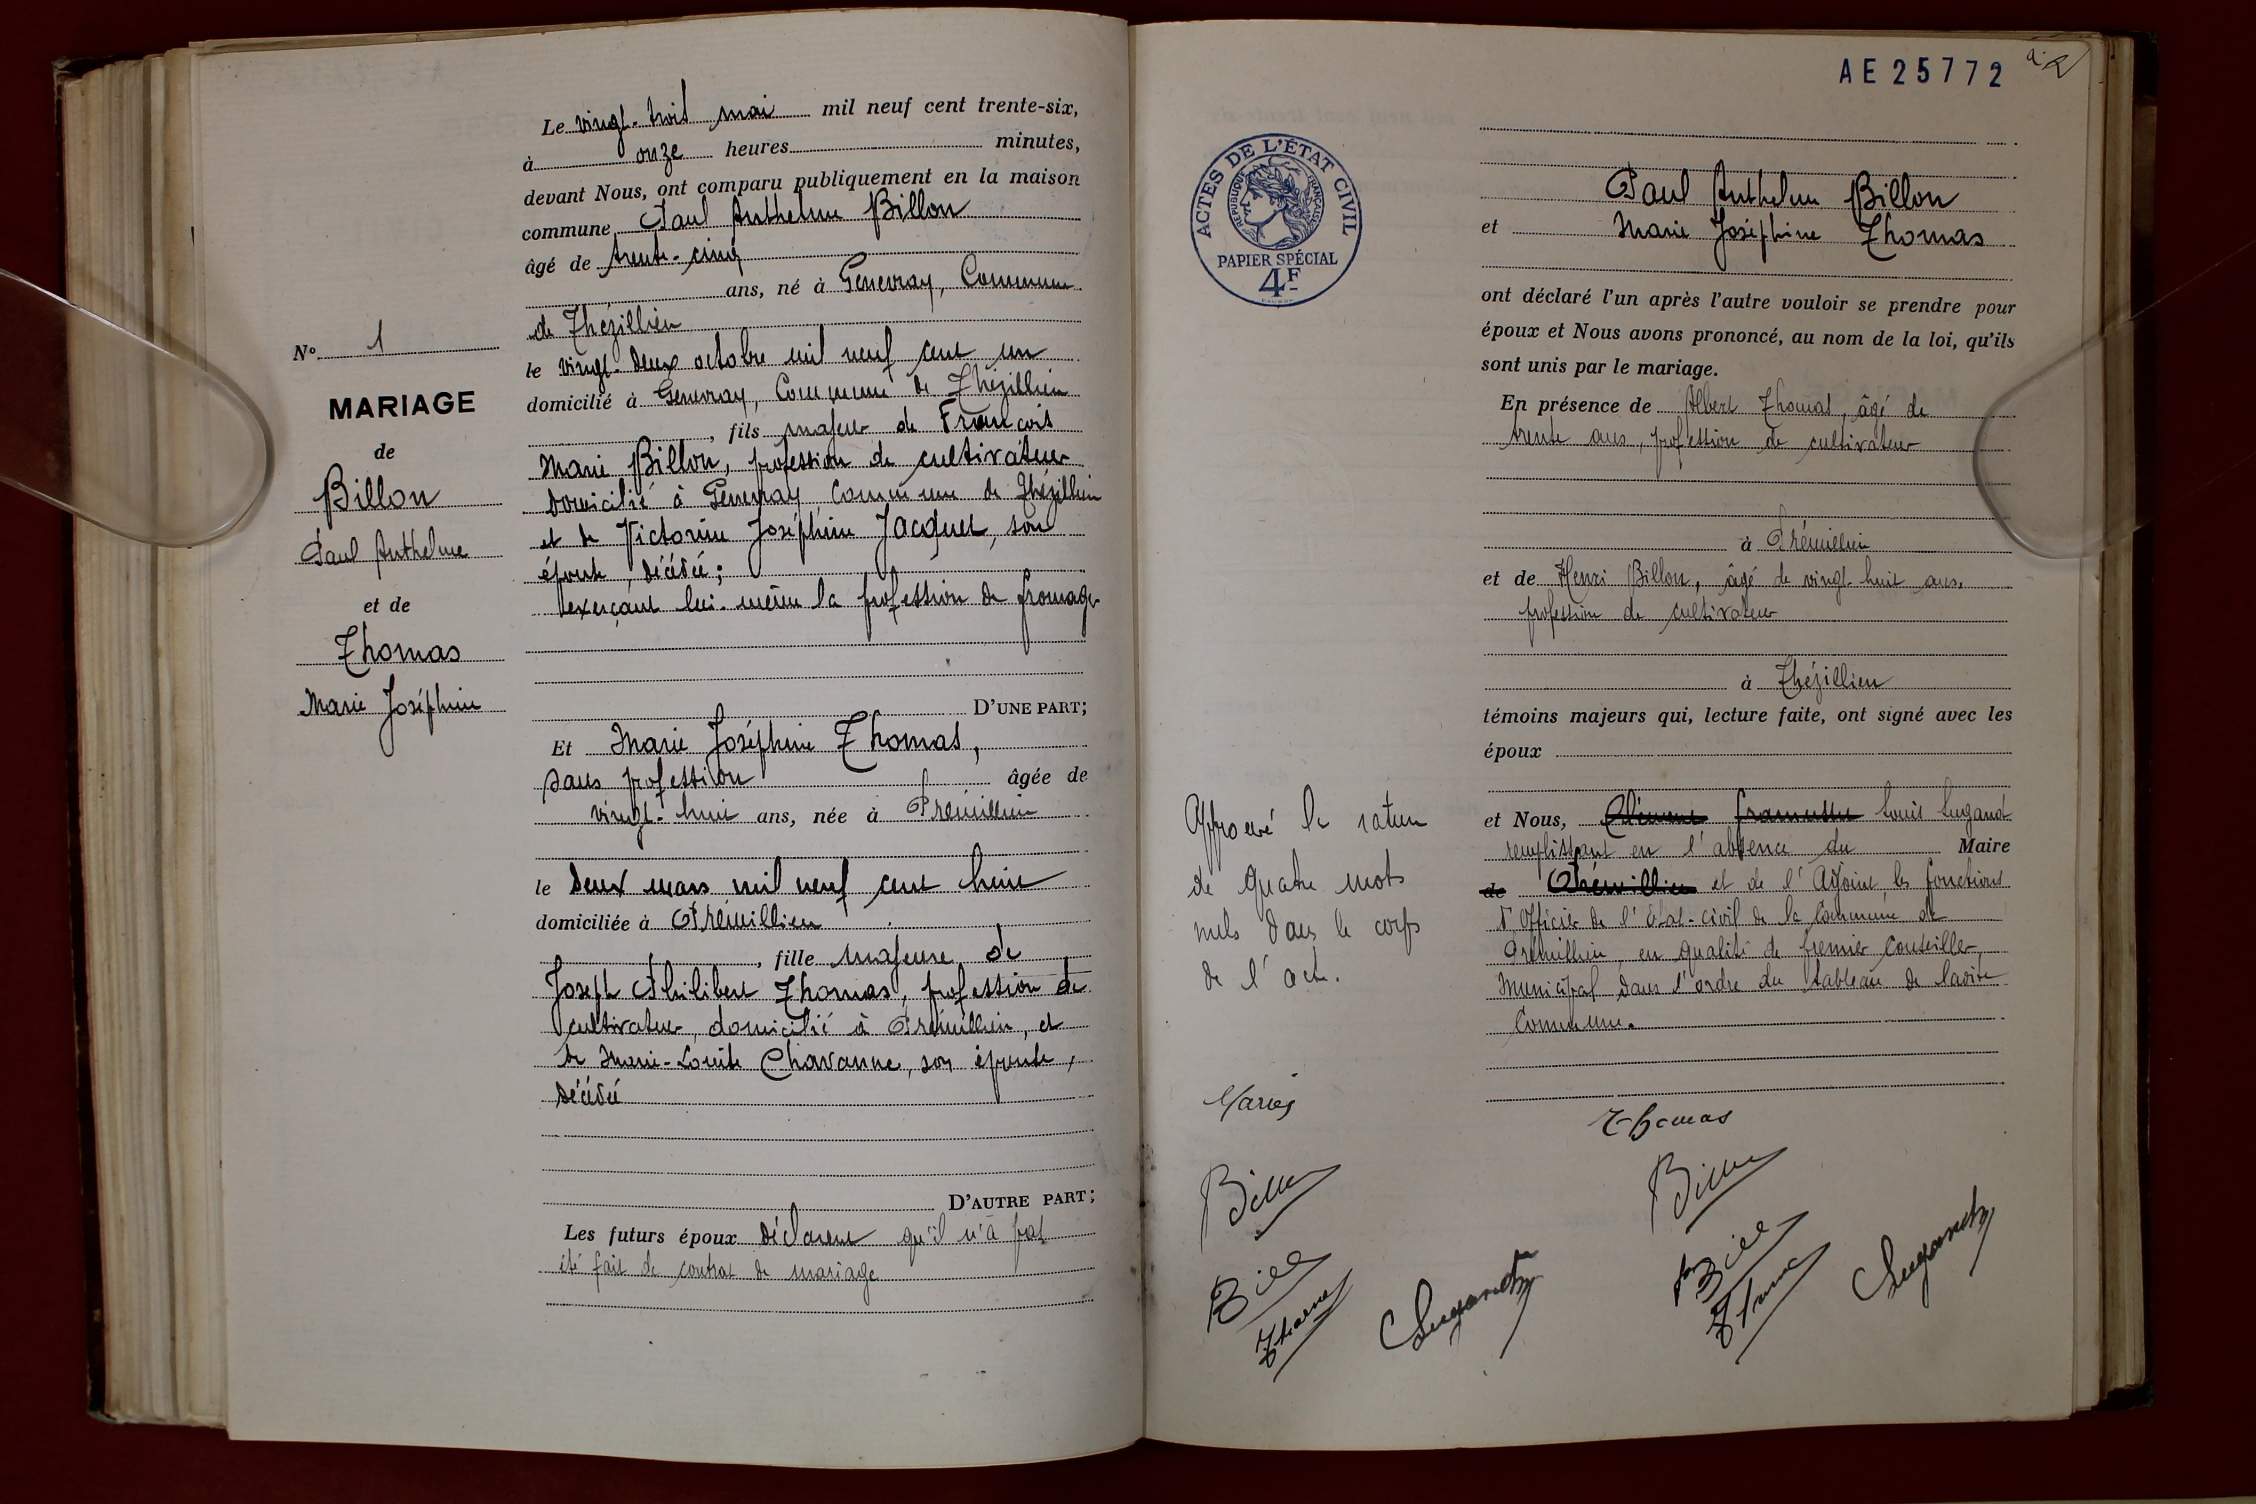 Le vingt-trois mai mil neuf cent trente-six,
à onze heures minutes,
devant Nous, ont comparu publiquement en la maison
commune Paul Anthelme Billon
âgé de trente-cinq
ans, né à Genevray, Commune
de Thézillieu
le vingt-deux octobre mil neuf cent un
domicilié à Genevray, Commune de Thézillieu
, fils majeur de François
Marie Billon, profession de cultivateur
domicilié à Genevray Commune de Thézillieu
et de Victorine Joséphine Jacquet, son
épouse, décédée;
exerçant lui-même la profession de fromager
D'UNE PART;
Et Marie Joséphine Thomas,
sans profession âgée de
vingt-huit ans, née à Prémillieu
le deux mars mil neuf cent huit
domiciliée à Prémillieu
, fille majeure de
Joseph Philibert Thomas, profession de
cultivateur, domicilié à Prémillieu, et
de Marie-Louise Chavanne, son épouse,
décédée
D'AUTRE PART;
Les futurs époux déclarent qu'il n'a pas
été fait de contrat de mariage
No 1
MARIAGE
de
Billon
Paul Anthelme
et de
Thomas
Marie Joséphine
AE 25772
ACTES DE L'ÉTAT CIVIL
RÉPUBLIQUE FRANÇAISE
PAPIER SPÉCIAL
4F
Paul Anthelme Billon
et Marie Joséphine Thomas
ont déclaré l'un après l'autre vouloir se prendre pour
époux et Nous avons prononcé, au nom de la loi, qu'ils
sont unis par le mariage.
En présence de Albert Thomas, âgé de
trente ans, profession de cultivateur
à Prémillieu
et de Henri Billon, âgé de vingt-huit ans,
profession de cultivateur
à Thézillieu
témoins majeurs qui, lecture faite, ont signé avec les
époux
et Nous, Clément Louis Lugand
remplissant en l'absence du Maire
de Prémillieu et de l'Adjoint les fonctions
d'Officier de l'Etat-civil de la Commune de
Prémillieu, en qualité de premier Conseiller
Municipal dans l'ordre du tableau de ladite
Commune.
Approuvé la rature
de quatre mots
nuls dans le corps
de l'acte.
Thomas
Billon
Billon
Thomas
Lugand
Billon
Billon
Thomas
Lugand